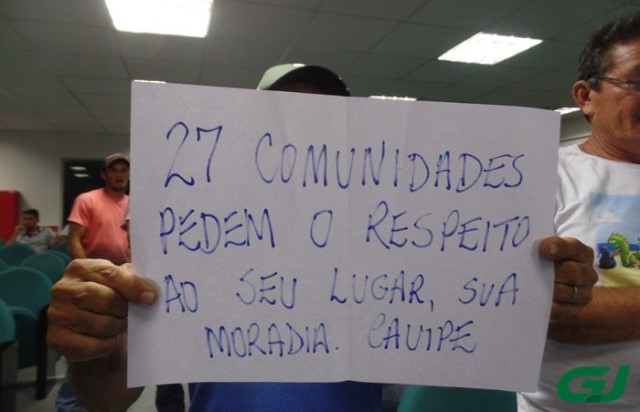 27 COMUNIDADES
PEDEM O RESPEITO
AO SEU LUGAR, SUA
MORADIA. CAUIPE
GJ